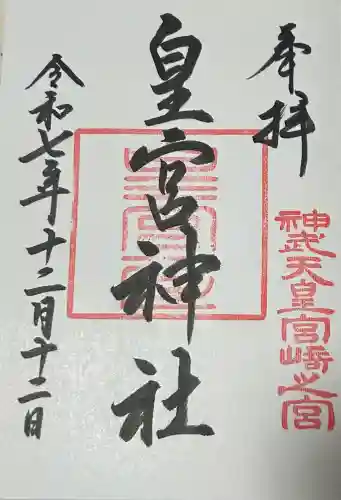 奉拝
神武天皇宮崎之宮
皇宮神社
皇宮
令和七年十二月十二日